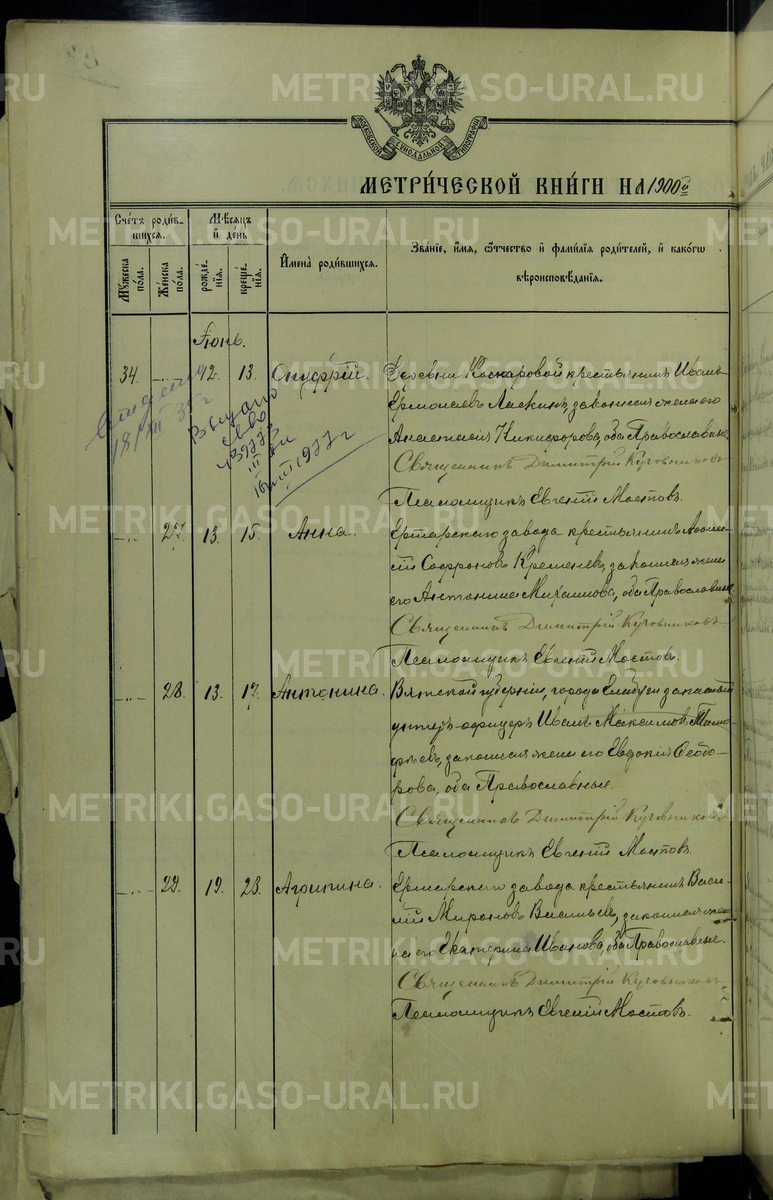 МОСКОВСКОЙ СѴНОДАЛЬНОЙ ТИПОГРАФІИ
МЕТРИ́ЧЕСКОЙ КНИ́ГИ НА 1900й
Сче́тъ роди́в-
шихсѧ.
Мꙋ́жеска
по́ла.
Же́нска
по́ла.
Мѣ́сѧцъ
и҆ де́нь
рожде́-
нїѧ.
креще́-
нїѧ.
И҆мена̀ роди́вшихсѧ.
Зва́нїе, и҆́мѧ, ѻ҆́тчество и҆ фами́лїѧ роди́телей, и҆ како́гѡ
вѣроисповѣ́данїѧ.
Іюнь.
34. 12. 13. Онуфрій. Деревни Коскаровой крестьянинъ Иванъ
Ермолаевъ Ласкинъ, законная жена его
Анастасія Никифорова, оба Православные
Священникъ Димитрій Куговниковъ
Псаломщикъ Евгеній Мостовъ.
18/III
Выдано
16 III 1977 г
27. 13. 15. Анна. Ертарскаго завода крестьянинъ
Софроновъ Кременевъ, законная жена
его Антонина Михаилова, оба Православные
Священникъ Димитрій Куговниковъ
Псаломщикъ Евгеній Мостовъ.
28. 13. 17. Антонина. Вятской губерніи, города Елабуги запасный
унтеръ-офицеръ Иванъ Максимовъ
законная жена его Евдокія Ѳеодо-
рова, оба Православные.
Священникъ Димитрій Куговниковъ
Псаломщикъ Евгеній Мостовъ.
29. 19. 23. Агрипина. Ертарскаго завода крестьянинъ Васи-
лій Мироновъ Васильевъ, законная же-
на его Екатерина Иванова, оба Православные.
Священникъ Димитрій Куговниковъ
Псаломщикъ Евгеній Мостовъ.
METRIKI.GASO-URAL.RU